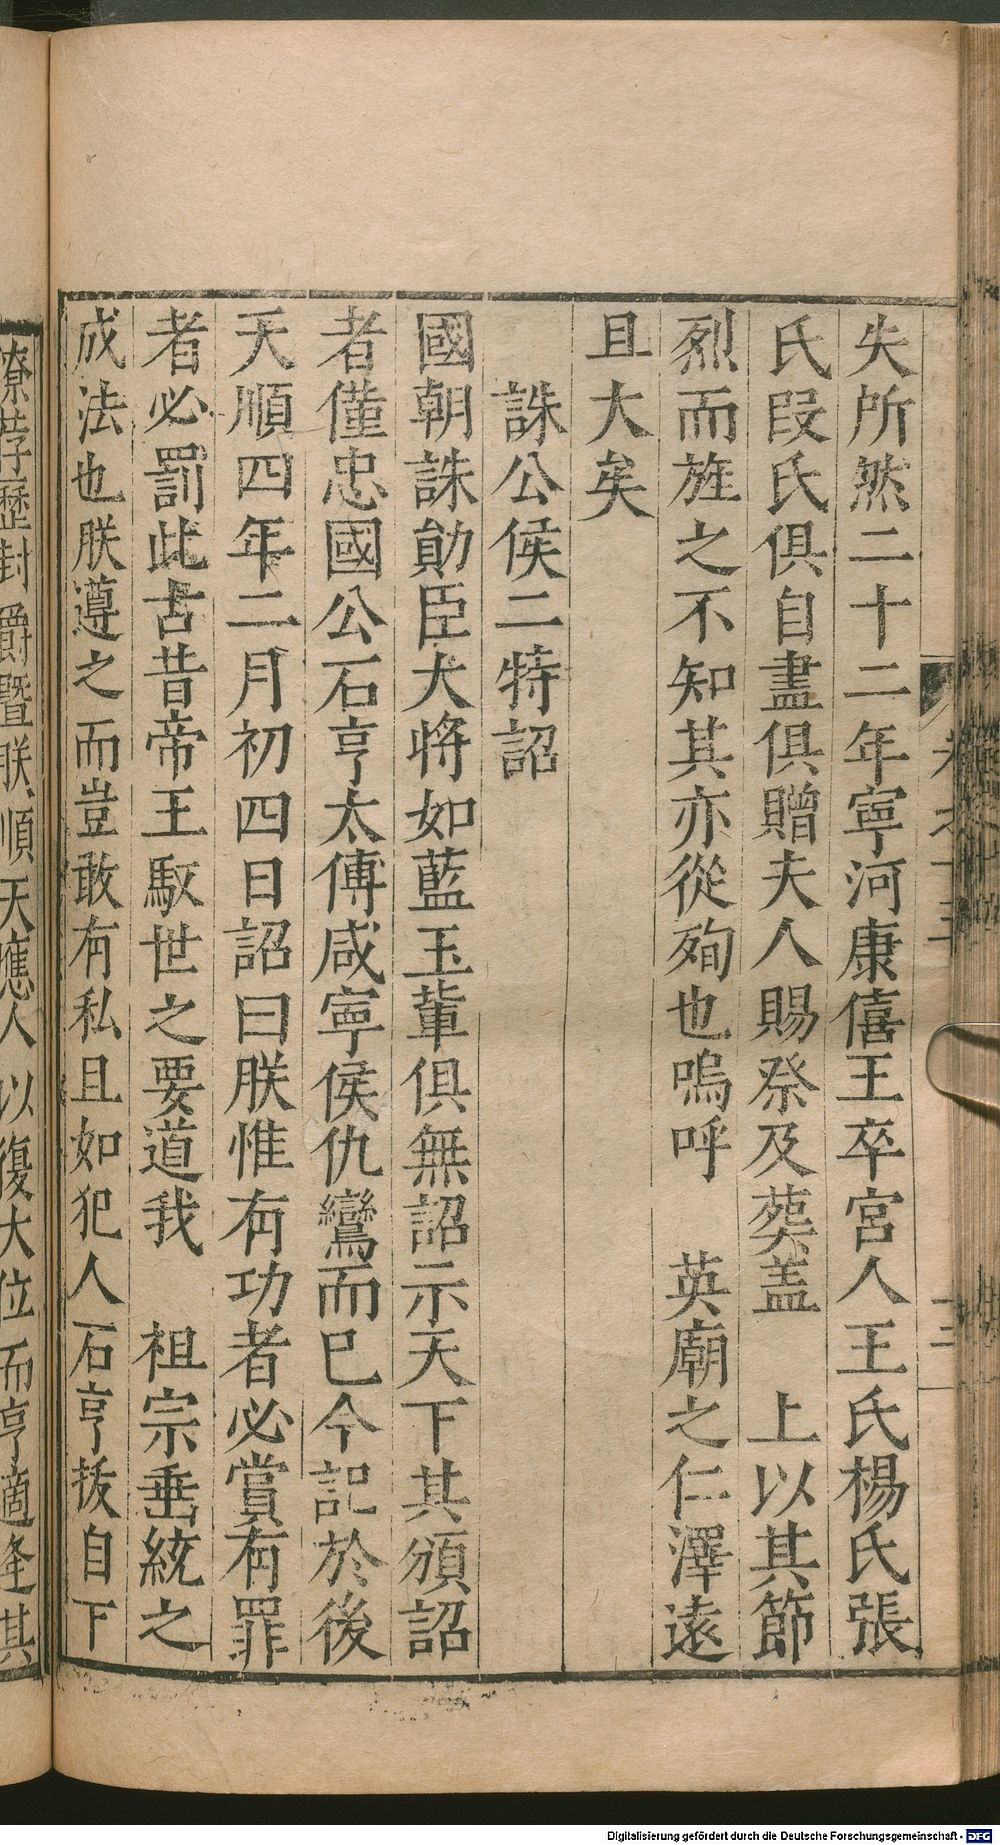 失所然二十二年寧河康僖王卒宮人王氏楊氏張
氏段氏俱自盡俱贈夫人賜祭及葬盖　上以其節
烈而旌之不知其亦從殉也嗚呼　英廟之仁澤遠
且大矣
誅公侯二特詔
國朝誅勛臣大將如藍玉輩俱無詔示天下其頒詔
者僅忠國公石亨太傅咸寧侯仇鸞而已今記於後
天順四年二月初四日詔曰朕惟有功者必賞有罪
者必罰此古昔帝王馭世之要道我　祖宗垂統之
成法也朕遵之而豈敢有私且如犯人石亨拔自下
僚荐歷封爵暨朕順天應人以復大位而亨適逢其
Digitalisierung gefördert durch die Deutsche Forschungsgemeinschaft - DFG